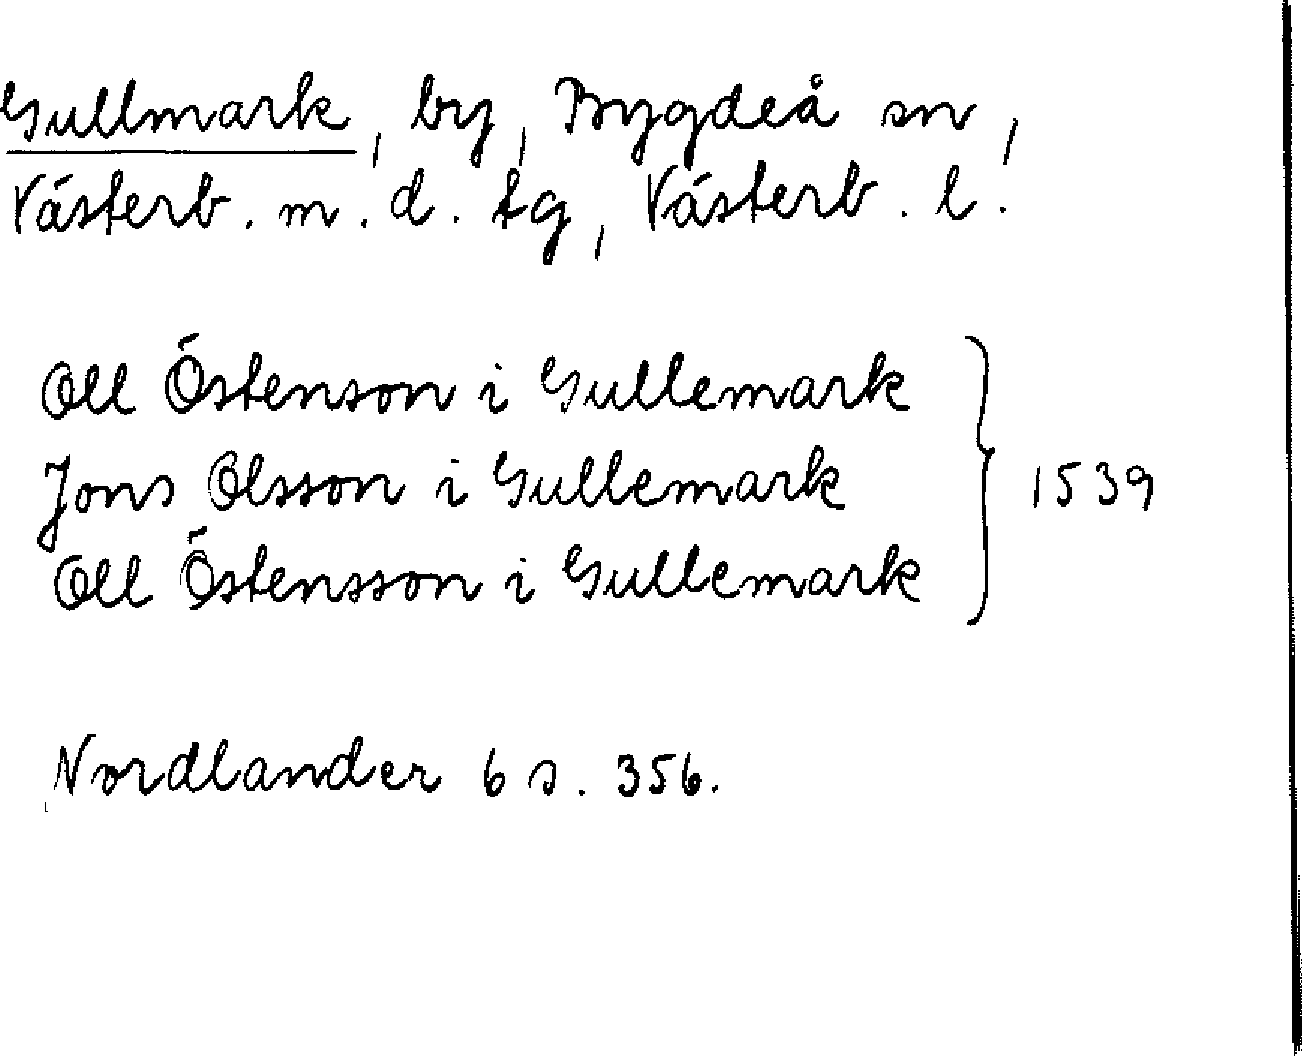 Gullmark, by, Bygdeå sn,
Västerb. m. d. tg, Västerb. l.
Oll Östenson i Gullemark
Jons Olsson i Gullemark } 1539
Oll Östensson i Gullemark
Nordlander 6 s. 356.